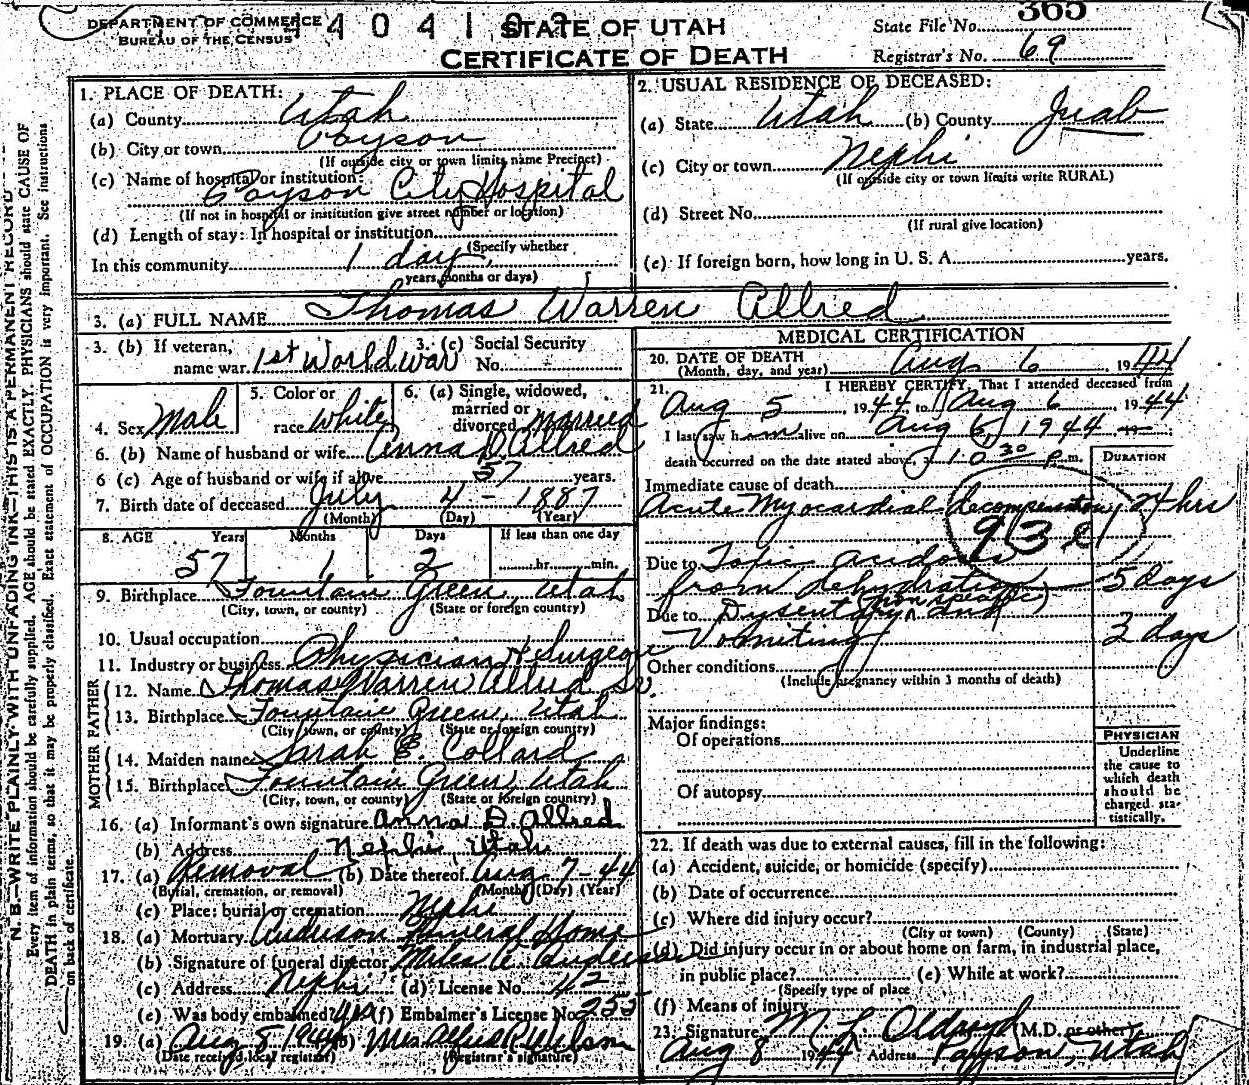 DEPARTMENT OF COMMERCE
BUREAU OF THE CENSUS
STATE OF UTAH
CERTIFICATE OF DEATH
State File No. 365
Registrar's No. 69
N. B.—WRITE PLAINLY WITH UNFADING INK—THIS IS A PERMANENT RECORD
Every item of information should be carefully supplied. AGE should be stated EXACTLY. PHYSICIANS should state CAUSE OF
DEATH in plain terms, so that it may be properly classified. Exact statement of OCCUPATION is very important. See instructions
on back of certificate.
1. PLACE OF DEATH:
(a) County Utah
(b) City or town Payson
(If outside city or town limits name Precinct)
(c) Name of hospital or institution:
Payson City Hospital
(If not in hospital or institution give street number or location)
(d) Length of stay: In hospital or institution
(Specify whether
In this community 1 day
years, months or days)
2. USUAL RESIDENCE OF DECEASED:
(a) State Utah (b) County Juab
(c) City or town Nephi
(If outside city or town limits write RURAL)
(d) Street No.
(If rural give location)
(e) If foreign born, how long in U. S. A. years.
3. (a) FULL NAME Thomas Warren Allred
3. (b) If veteran, name war. 1st World War
3. (c) Social Security No. -
4. Sex Male
5. Color or race White
6. (a) Single, widowed, married or divorced married
6. (b) Name of husband or wife Anna D. Allred
6 (c) Age of husband or wife if alive 57 years.
7. Birth date of deceased July 4 - 1887
(Month) (Day) (Year)
8. AGE Years Months Days If less than one day
57 1 2 hr. min.
9. Birthplace Fountain Green, Utah
(City, town, or county) (State or foreign country)
10. Usual occupation
11. Industry or business Physician & Surgeon
FATHER
12. Name Thomas Warren Allred Sr.
13. Birthplace Fountain Green, Utah
(City, town, or county) (State or foreign country)
MOTHER
14. Maiden name Sarah E. Collard
15. Birthplace Fountain Green, Utah
(City, town, or county) (State or foreign country)
16. (a) Informant's own signature Anna D. Allred
(b) Address Nephi, Utah
17. (a) Removal (b) Date thereof Aug 7-44
(Burial, cremation, or removal) (Month) (Day) (Year)
(c) Place: burial or cremation Nephi
18. (a) Mortuary Anderson Funeral Home
(b) Signature of funeral director Miles A. Anderson
(c) Address Nephi (d) License No. 42
(e) Was body embalmed? (f) Embalmer's License No. 255
19. (a) Aug 8, 1944 (b) Mrs Alfred P. Wilson
(Date received local registrar) (Registrar's signature)
MEDICAL CERTIFICATION
20. DATE OF DEATH
(Month, day, and year) Aug 6, 1944
21. I HEREBY CERTIFY, That I attended deceased from
Aug 5, 1944, to Aug 6, 1944
I last saw him alive on Aug 6, 1944
death occurred on the date stated above, 10 30 P. m.
DURATION
Immediate cause of death
Acute Myocardial decompensation 24 hrs
93e
Due to Toxic acidosis
from dehydration 5 days
Due to Dysentery (non specific) and
Vomiting 3 days
Other conditions
(Include pregnancy within 3 months of death)
Major findings:
Of operations
Of autopsy
PHYSICIAN
Underline
the cause to
which death
should be
charged sta-
tistically.
22. If death was due to external causes, fill in the following:
(a) Accident, suicide, or homicide (specify)
(b) Date of occurrence
(c) Where did injury occur?
(City or town) (County) (State)
(d) Did injury occur in or about home on farm, in industrial place,
in public place? (e) While at work?
(Specify type of place
(f) Means of injury
23. Signature M L Oldroyd (M.D. or other)
Aug 8 1944 Address Payson, Utah